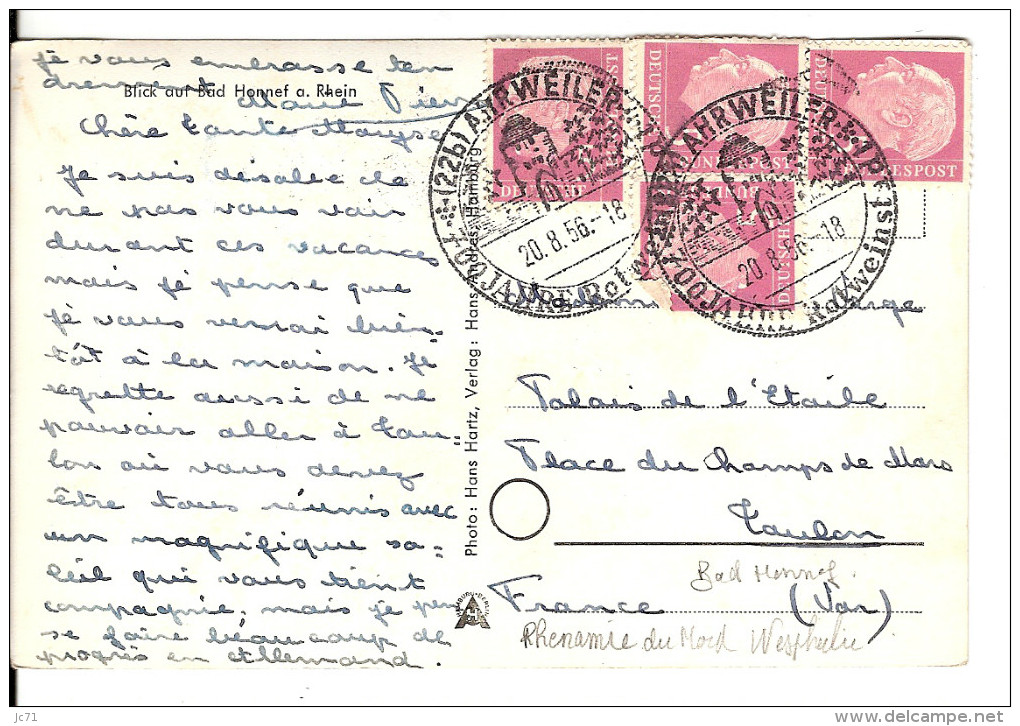 je vous embrasse ten
drement Marie Pierr
Blick auf Bad Honnef a. Rhein
Chère Tante Maryse
Je suis désolée de
ne pas vous voir
durant ces vacances
mais je pense que
je vous verrai bien-
tôt à la maison. Je
regrette aussi de ne
pouvoir aller à Tou-
lon où vous devez
être tous réunis avec
un magnifique so-
leil qui vous tient
compagnie, mais je pen
se faire beaucoup de
progrès en Allemand.
Photo: Hans Hartz, Verlag: Hans Andres, Hamburg
(22b) AHRWEILER
20.8.56.-18
700 JAHRE Rotwein
(22b) AHRWEILER
20.8.56.-18
700 JAHRE Rotweinst
DEUTSCHE BUNDESPOST
Palais de l'Etoile
Place du Champs de Mars
Toulon
Bad Honnef.
France (Var)
Rhenamie du Nord Wesphalie
jc71
www.delcampe.net